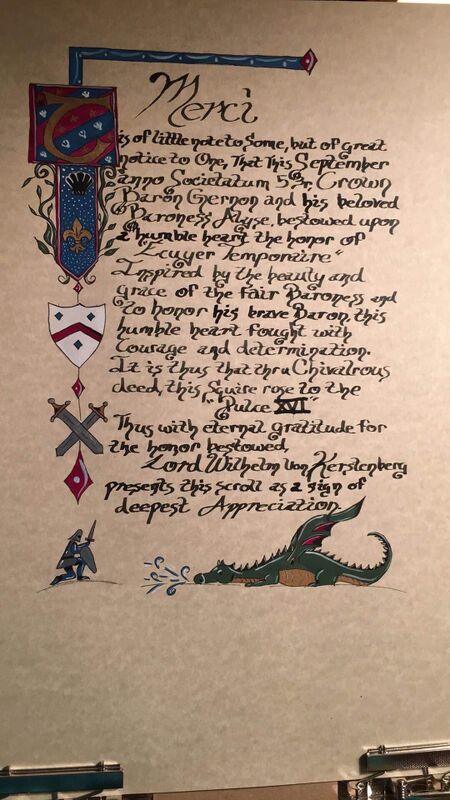 Merci
T is of little note to Some, but of great
notice to One, That This September
Anno Societatum 52, Crown
Baron Gernon and his beloved
Baroness Alyse, bestowed upon
a humble heart the honor of
"Ecuyer Temporaire"
Inspired by the beauty and
grace of the fair Baroness and
to honor his brave Baron, this
humble heart fought with
Courage and determination.
It is thus that thru Chivalrous
deed, this Squire rose to the
"Pulce XVI"
Thus with eternal gratitude for
the honor bestowed,
Lord Wilhelm Von Kerstenberg
presents this scroll as a sign of
deepest Appreciation.